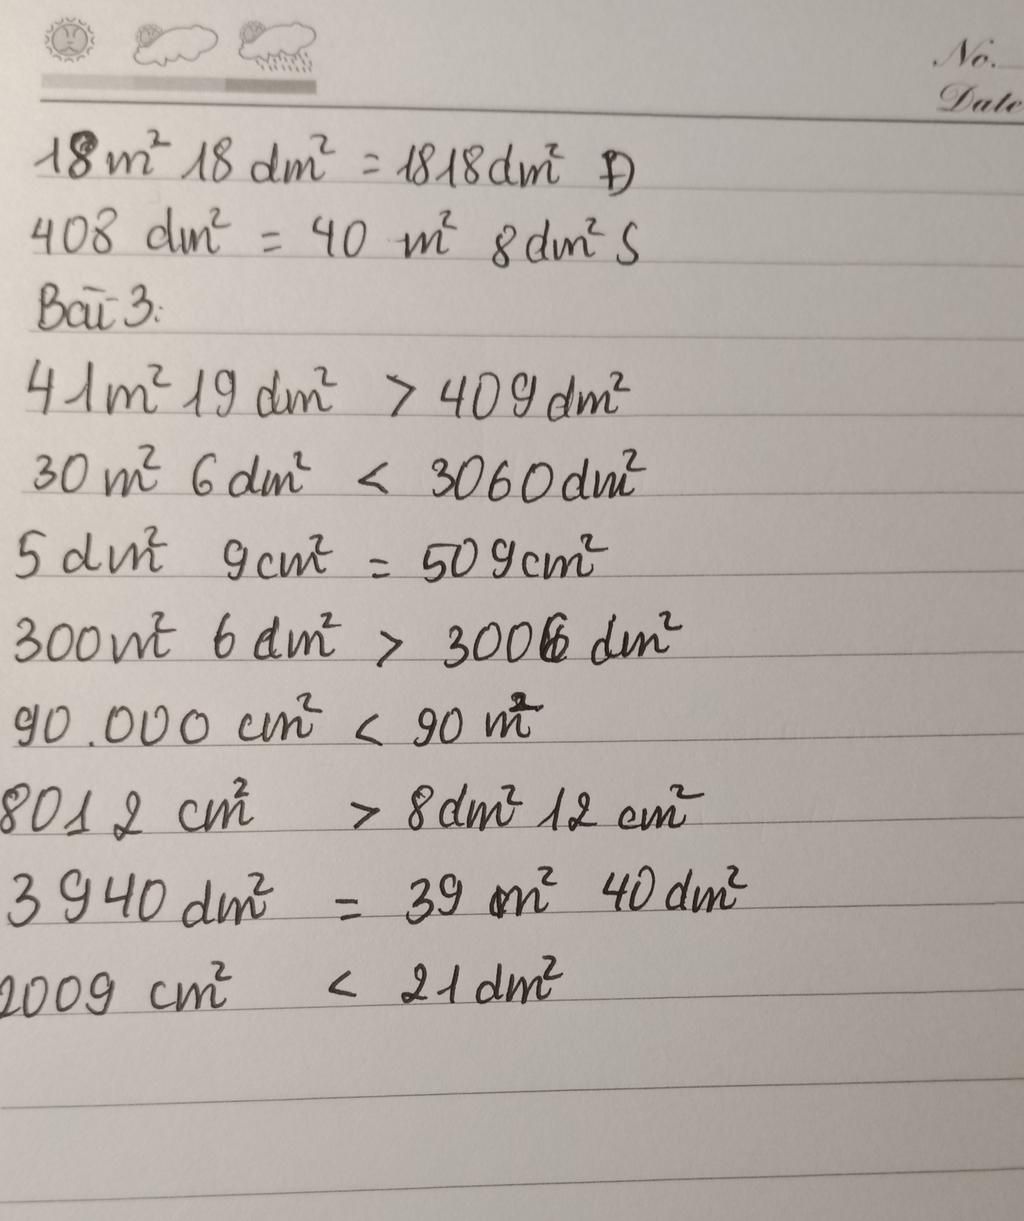 No.
Date
18m² 18 dm² = 1818dm² Đ
408 dm² = 40 m² 8dm² S
Bài 3:
41m² 19 dm² > 409dm²
30 m² 6 dm² < 3060dm²
5 dm² 9cm² = 509cm²
300m² 6 dm² > 3006 dm²
90.000 cm² < 90 m²
8012 cm² > 8dm² 12 cm²
3940 dm² = 39 m² 40 dm²
2009 cm² < 21 dm²